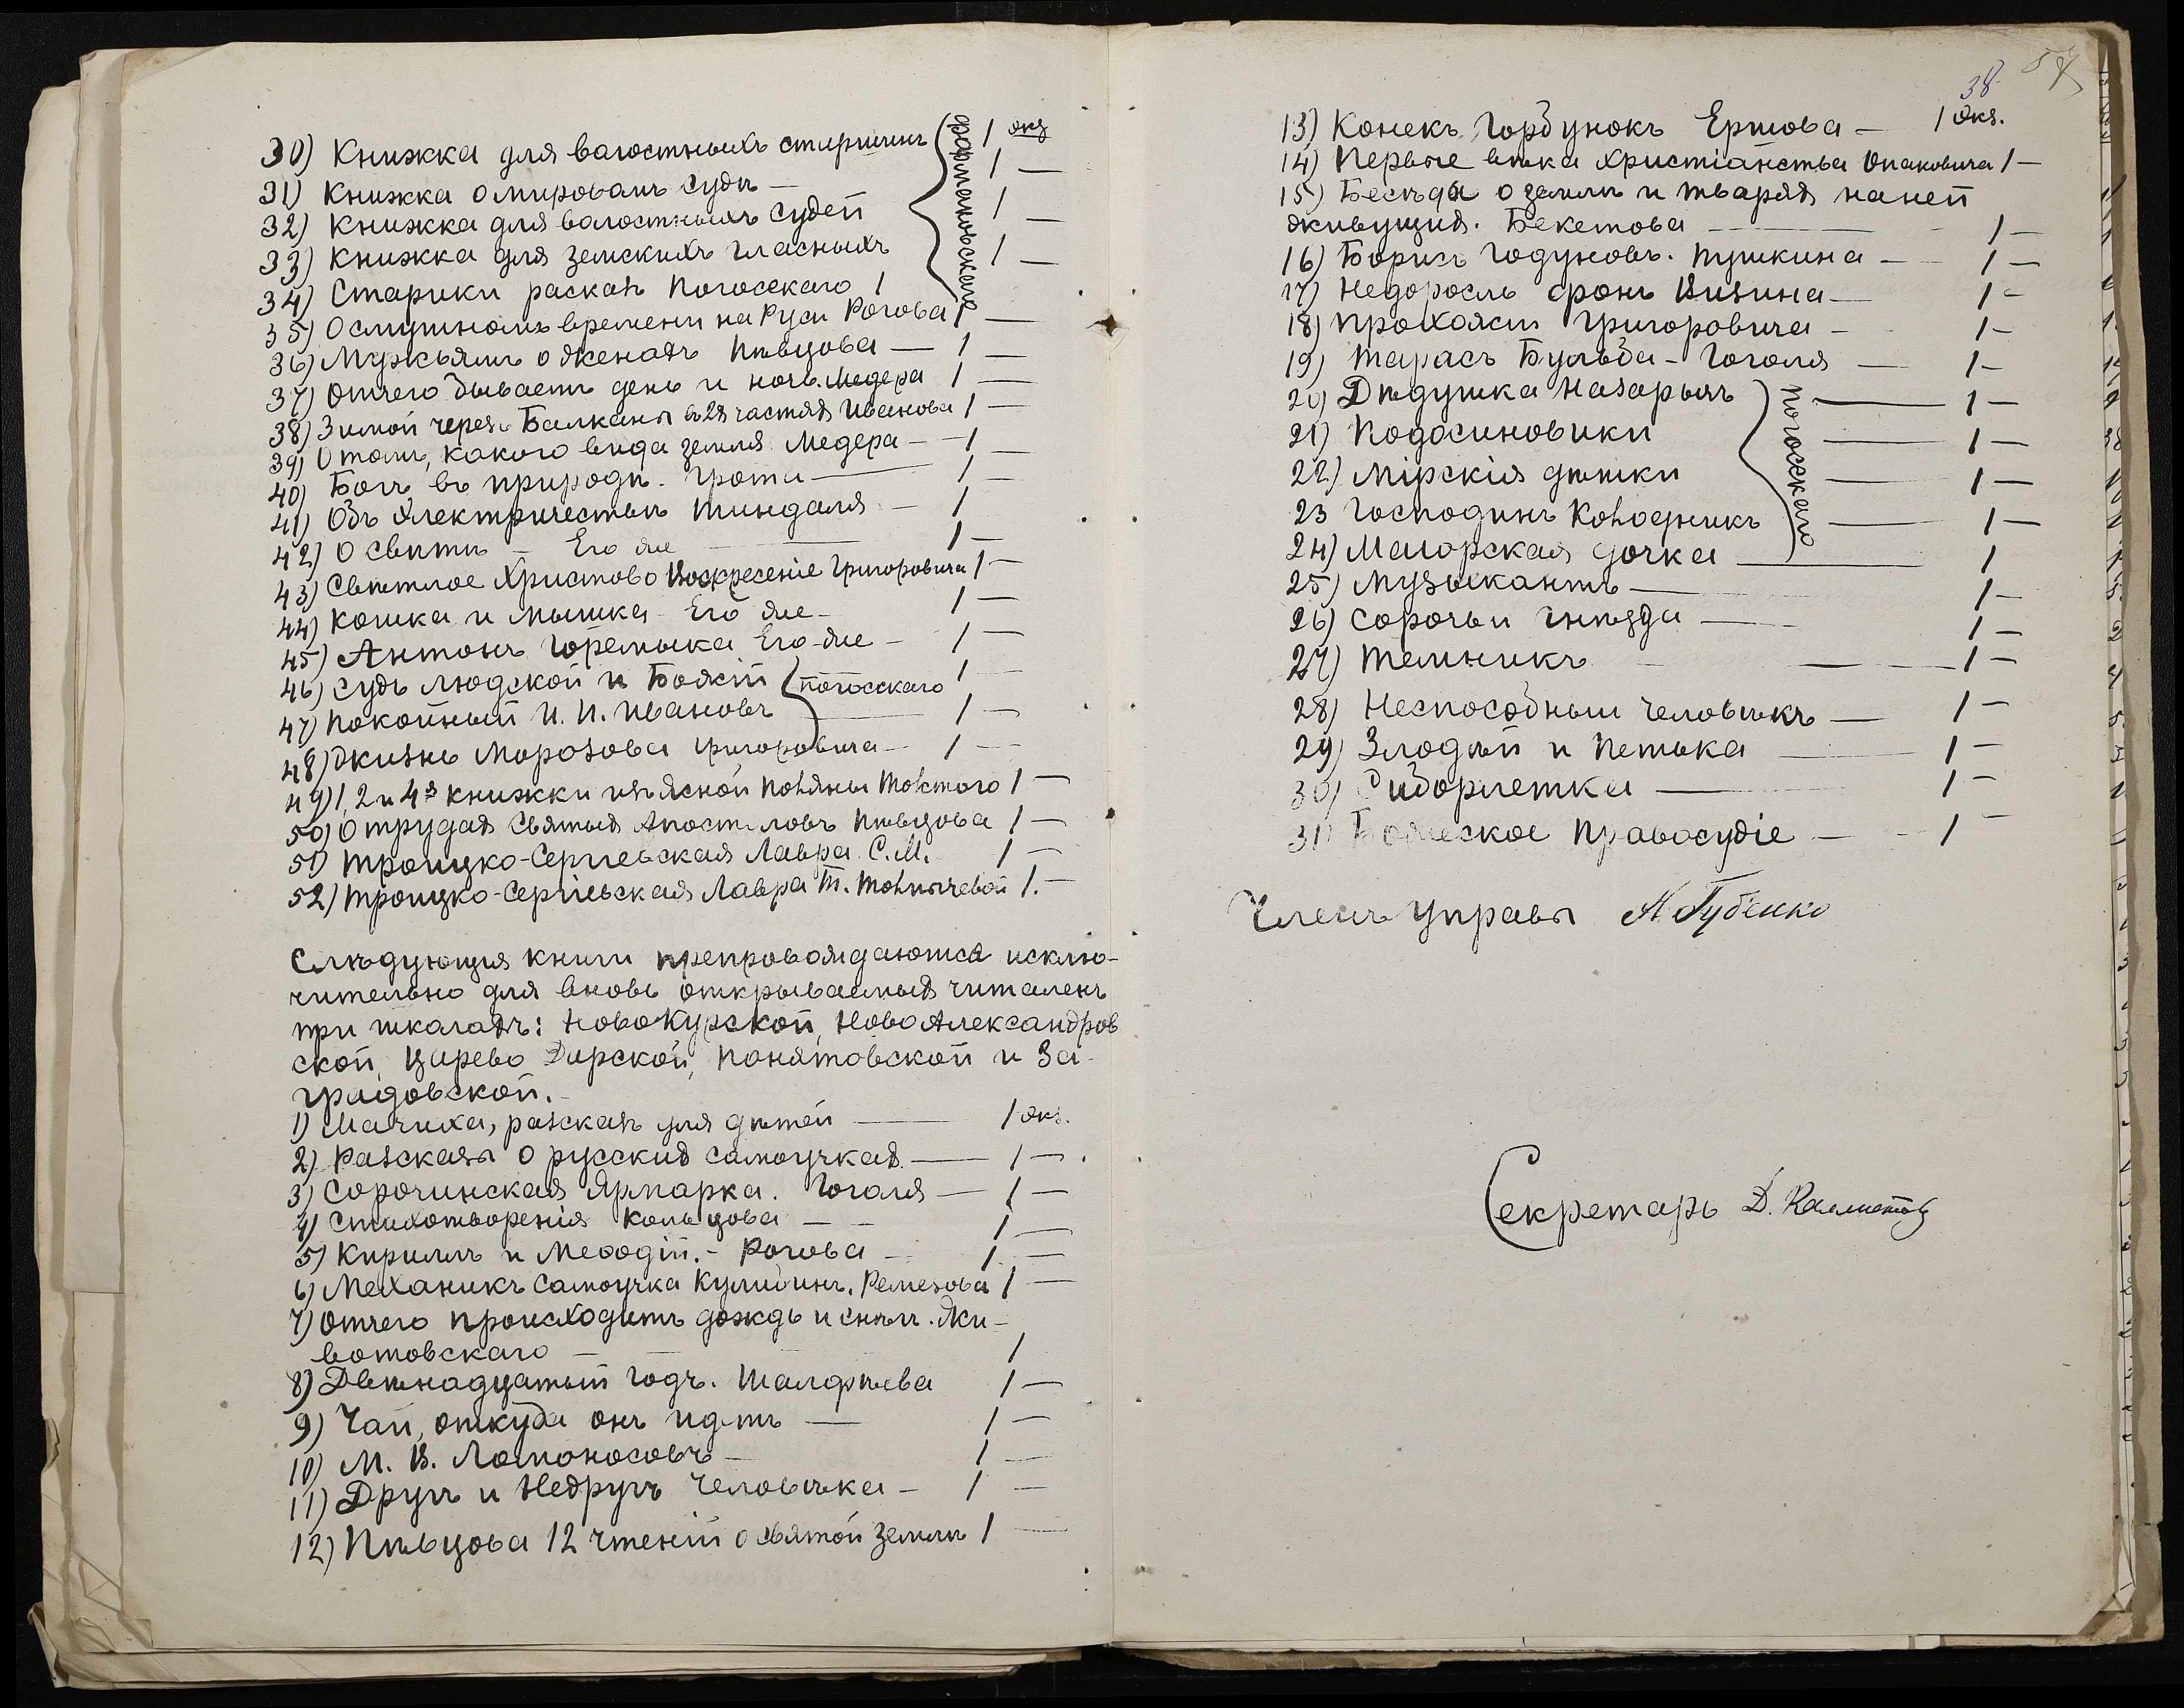 30) Книжка для волостныхъ старшинъ 1 экз
31) Книжка о мировомъ судѣ — 1 —
32) Книжка для волостныхъ судей 1 —
33) Книжка для земскихъ гласныхъ 1 —
Фармаковскаго
34) Старики расказъ Погосскаго 1
35) О смутномъ времени на Руси Рогова 1 —
36) Мужьямъ о женахъ Пѣвцова — 1 —
37) Отчего бываетъ день и ночь. Медера 1 —
38) Зимой черезъ Балканы въ 2х частяхъ Иванова 1 —
39) О томъ, какого вида земля Медера — 1 —
40) Богъ въ природѣ. Грота — 1 —
41) Объ электричествѣ Тиндаля — 1
42) О свѣтѣ — Его же — 1 —
43) Свѣтлое Христово Воскресеніе Григоровича 1 —
44) Кошка и мышка Его же — 1 —
45) Антонъ Горемыка Его-же — 1 —
46) Судъ людской и Божій 1 —
47) Покойный И. И. Ивановъ 1 —
Погосскаго
48) Жизнь Морозова Григоровича — 1 —
49) 1, 2 и 4я книжки изъ Ясной Поляны Толстого 1 —
50) О трудахъ Святыхъ Апостоловъ Пѣвцова 1 —
51) Троицко-Сергіевская Лавра С. М. 1 —
52) Троицко-Сергіевская Лавра Т. Толычевой 1. —
Слѣдующія книги препровождаются исклю-
чительно для вновь открываемыхъ читаленъ
при школахъ: Ново Курской, Ново Александров
ской, Царево Дарской, Понятовской и За-
градовской.
1) Мачиха, разсказъ для дѣтей — 1 экз.
2) Разсказы о русскихъ самоучкахъ — 1 —
3) Сорочинская Ярмарка. Гоголя — 1 —
4) Стихотворенія Кольцова — 1 —
5) Кириллъ и Меѳодій. — Рогова — 1 —
6) Механикъ самоучка Кулибинъ. Ремезова 1 —
7) Отчего происходитъ дождь и снѣгъ. Жи-
вотовскаго — 1
8) Двѣнадцатый годъ. Шалфѣева 1 —
9) Чай, откуда онъ идетъ — 1 —
10) М. В. Ломоносовъ — 1 —
11) Другъ и Недругъ человѣка — 1 —
12) Пѣвцова 12 чтеній о святой землѣ 1 —
38
13) Конекъ Горбунокъ Ершова — 1 экз.
14) Первые вѣка христіанства Опаковича 1 —
15) Бесѣды о землѣ и тваряхъ на ней
живущихъ. Бекетова — 1 —
16) Борисъ Годуновъ. Пушкина — 1 —
17) Недоросль фонъ Визина — 1 —
18) Прохожій Григоровича — 1 —
19) Тарасъ Бульба — Гоголя — 1 —
20) Дѣдушка Назарычъ — 1 —
21) Подосиновики — 1 —
22) Мірскія дѣтки — 1 —
23 Господинъ Колодникъ — 1 —
24) Маіорская дочка — 1
Погосскаго
25) Музыкантъ — 1 —
26) Сорочьи гнѣзда — 1 —
27) Темникъ — 1 —
28) Неспособный человѣкъ — 1 —
29) Злодѣй и Петька — 1 —
30) Сибирлетка — 1 —
31) Божеское правосудіе — 1 —
Членъ Управы А. Губенко
Секретарь Д.